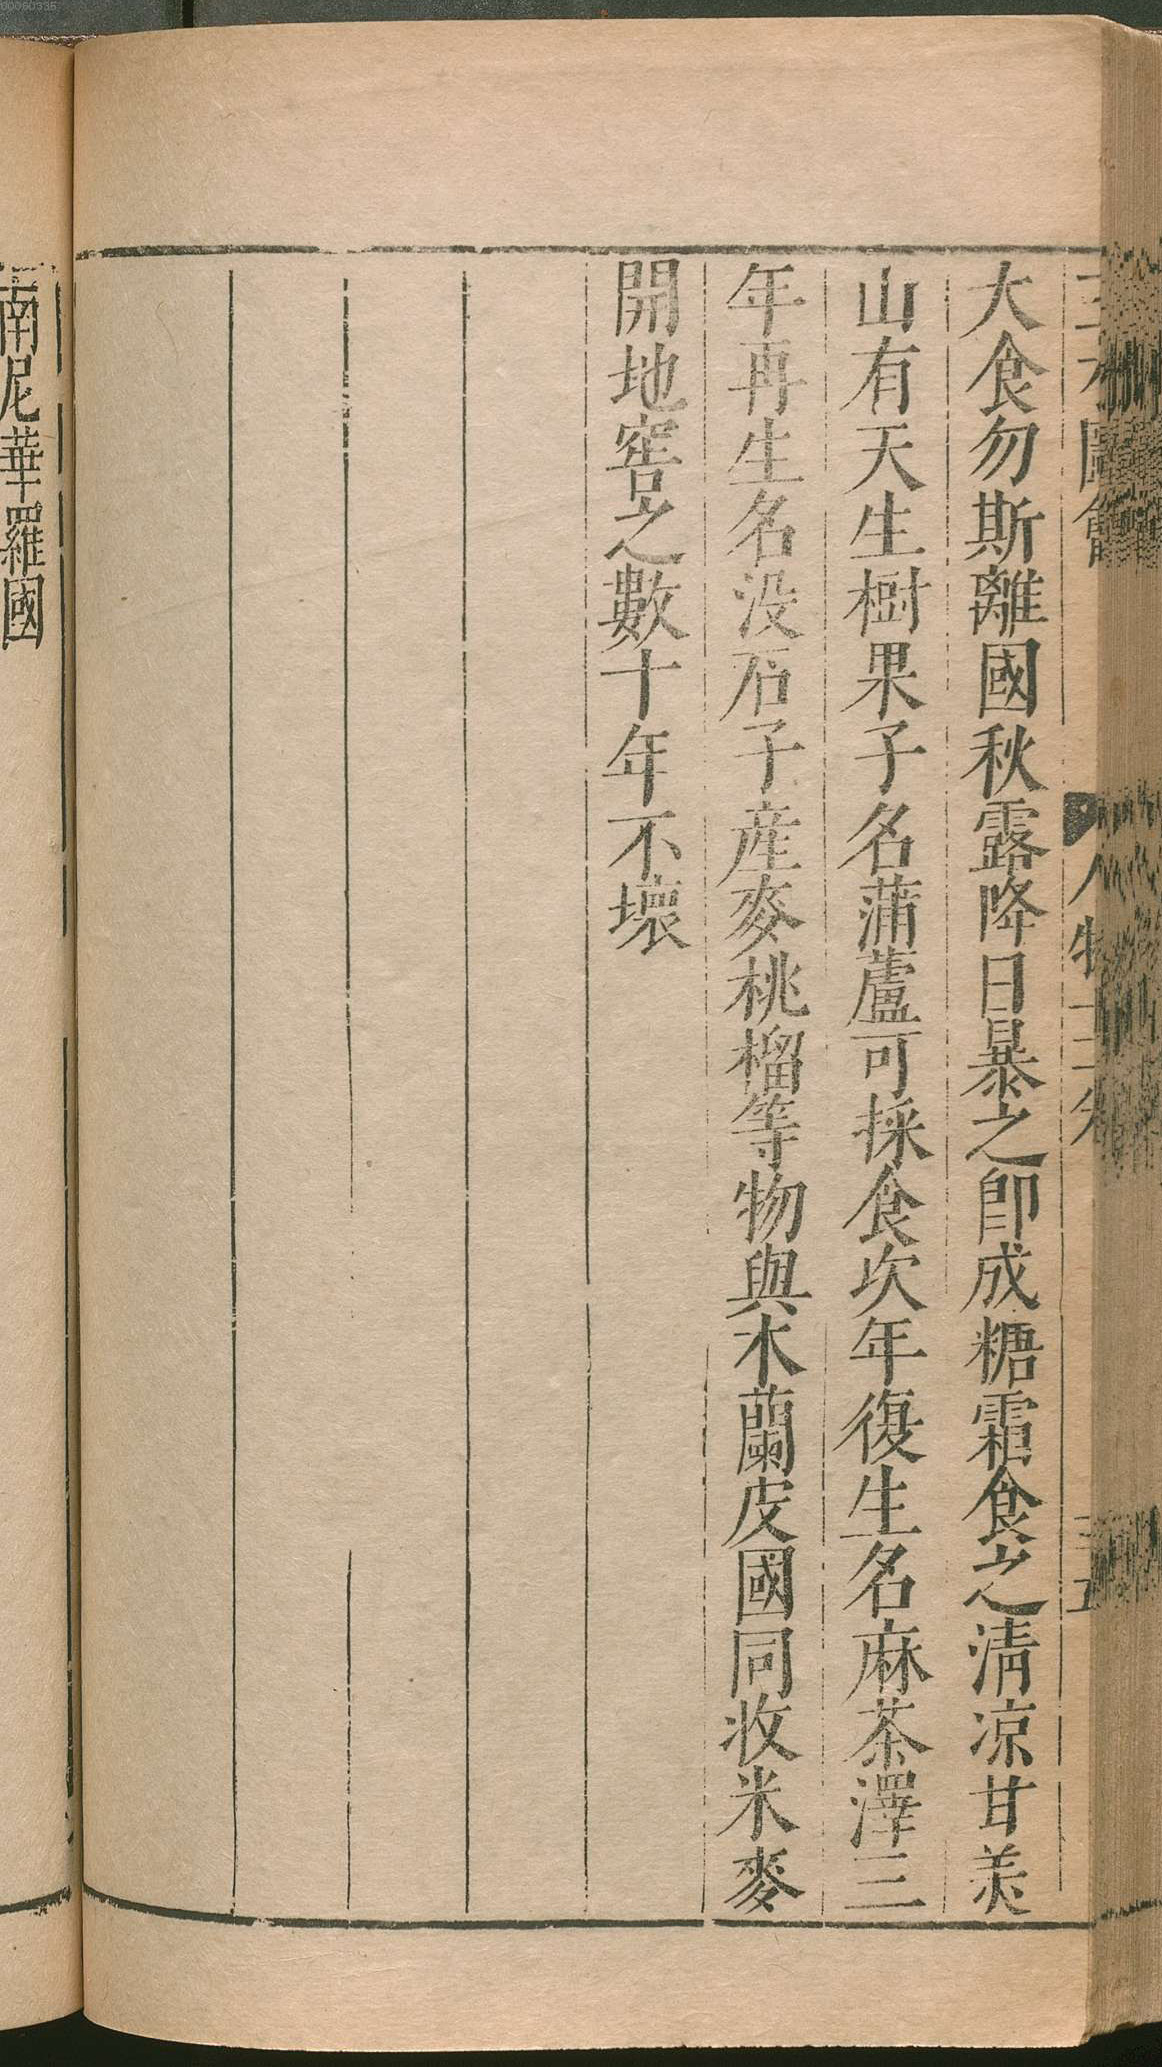 大食勿斯離國秋露降日暴之卽成糖霜食之淸凉甘美
山有天生樹果子名蒲蘆可採食次年復生名麻茶澤三
年再生名没石子産麥桃榴等物與木蘭皮國同收米麥
開地窖之數十年不壞
南尼華羅國
00060335